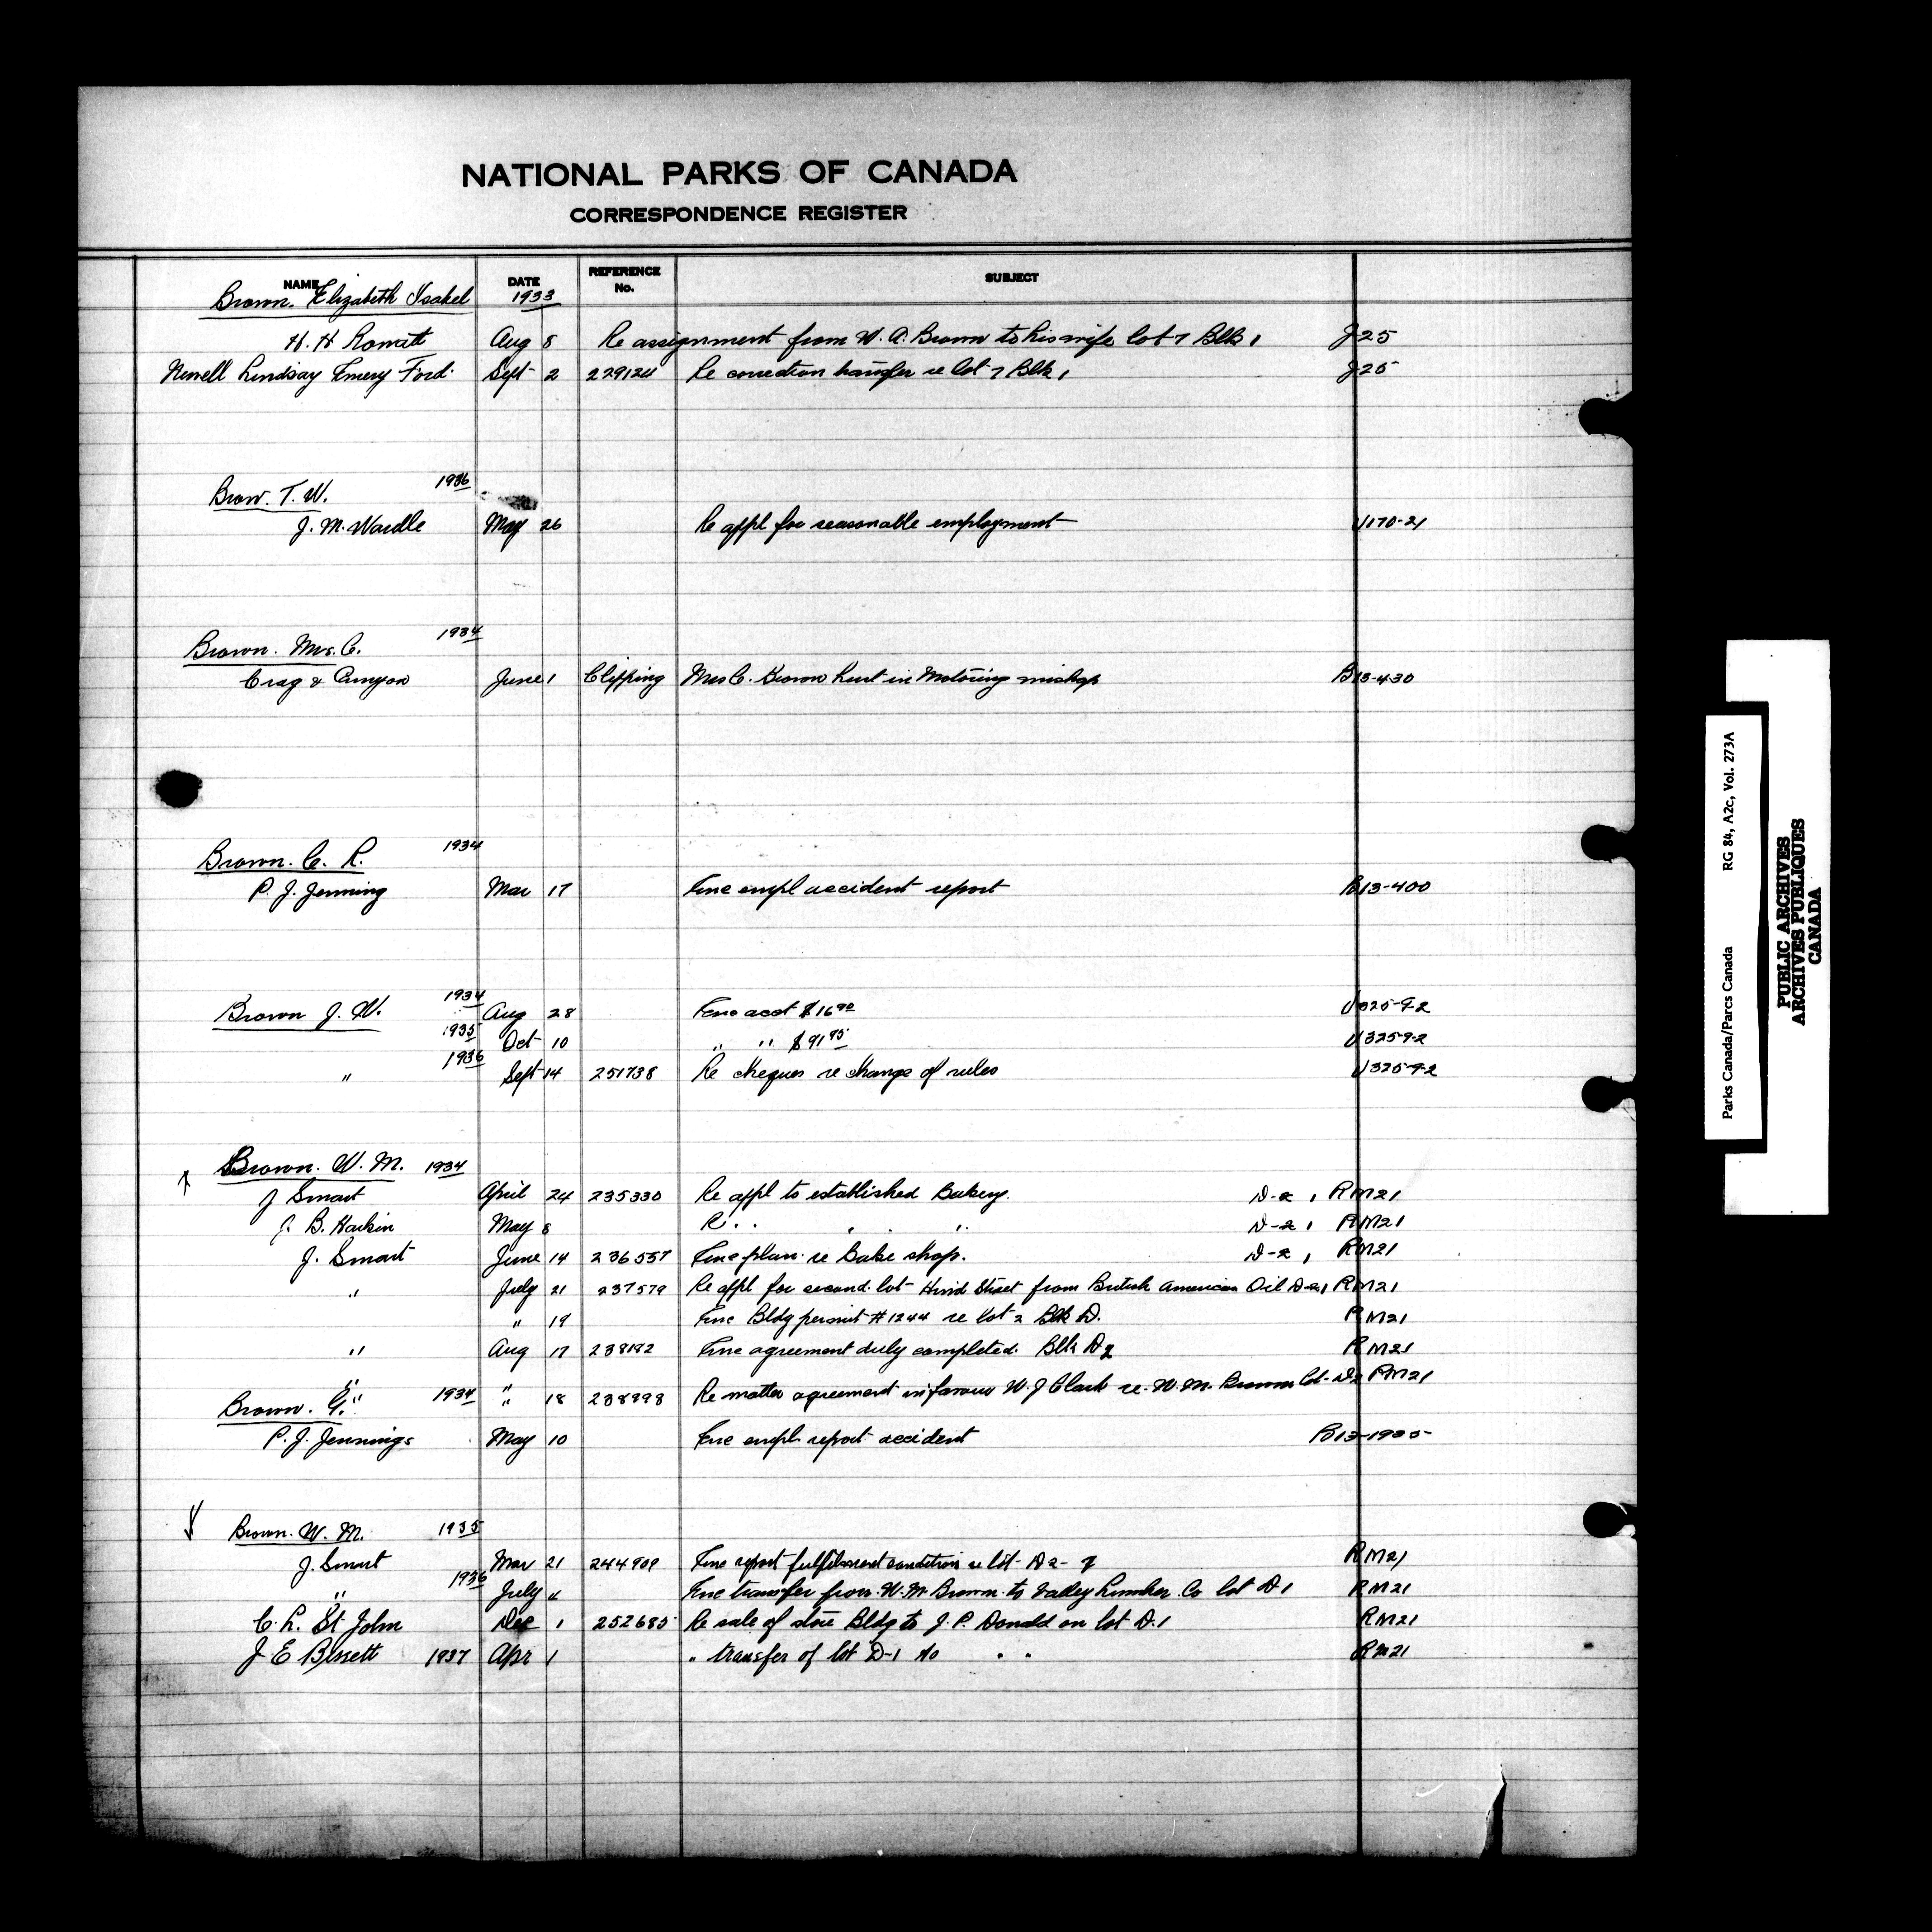 NATIONAL PARKS OF CANADA
CORRESPONDENCE REGISTER
NAME DATE REFERENCE No. SUBJECT
Brown. Elizabeth Isabel 1933
H. H Romitt Aug 8 Re assignment from W. A. Brown to his wife lot 7 Blk 1 J25
Newell Lindsay Emery Ford. Sept 2 229124 Re correction transfer re lot 7 Blk 1 J25
Brow. T. W. 1936
J. M. Wardle May 26 Re appl for seasonable employment U170-21
Brown. Mrs. C. 1934
Crag & Canyon June 1 Clipping Mrs C. Brown hurt in Motoring mishap B13-430
Brown. C. R. 1934
P. J. Jenning Mar 17 Enc empl accident report B13-400
Brown J. W. 1934 Aug 28 Enc acct $16.90 U325-9-2
1935 Oct 10 " " $91.95 U325-9-2
" 1936 Sept 14 251738 Re cheques re change of rules U325-9-2
Brown. W. M. 1934
J Smart April 24 235330 Re appl to established Bakery. D-2, RM21
J. B. Harkin May 8 R " " " D-2, RM21
J. Smart June 14 236557 Enc plan re Bake shop. D-2, RM21
" July 21 237579 Re appl for second lot Hurd Street from British American Oil D-2, RM21
" 19 Enc Bldg permit #1244 re lot 2 Blk D. RM21
" Aug 17 238182 Enc agreement duly completed. Blk D2 RM21
" " 18 238998 Re matter agreement in favour W. J Clark re. W. M. Brown lot D2 RM21
Brown. G. 1934
P. J. Jennings May 10 Enc empl report accident B13-1935
Brown. W. M. 1935
J. Smart Mar 21 244909 Enc report fulfilment condition re lot D2- RM21
" 1936 July 4 Enc transfer from W. M. Brown to Valley Lumber Co lot D1 RM21
C. L. St John Dec 1 252685 Re sale of store Bldg to J. P. Donald on lot D.1 RM21
J E Bissett 1937 Apr 1 " transfer of lot D-1 to " " RM21
Parks Canada/Parcs Canada RG 84, A2c, Vol. 273A
PUBLIC ARCHIVES
ARCHIVES PUBLIQUES
CANADA